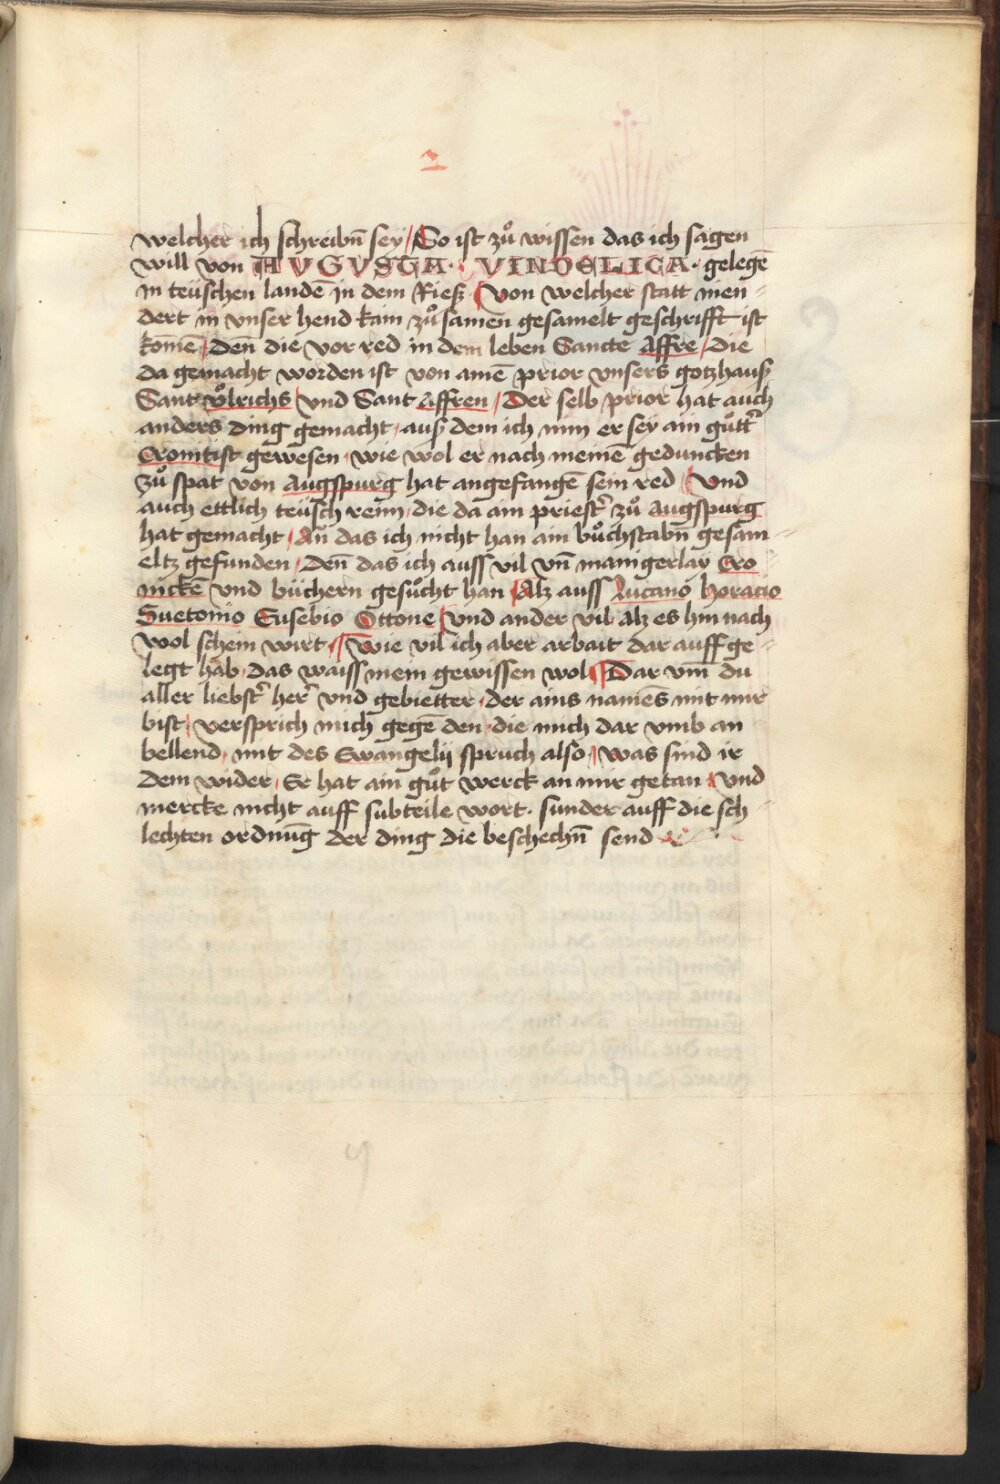 2
welcher ich schreibn̄ sey / So ist zů wissen das ich sagen
will von AUGUSTA · VINDELICA · gelegē
in teüschen landē in dem Rieß / Von welcher statt nien-
dert in vnser hend kam zůsamen gesamelt geschrifft ist
komē / Den̄ die vor red in dem leben Sancte Affre / die
da gemacht worden ist von ainē prior vnsers gotzhauß
Sant vͦlrichs / vnd Sant Affren / Der selb prior hat auch
anders ding gemacht / auß dem ich nim er sey ain gůtt̄
Cronitist gewesen / wie wol er nach meinē geduncken
zů spat von Augspurg hat angefangē sein red / Vnd
auch ettlich teüsch reim / die da ain priestr̄ zů Augspurg
hat gemacht / An̄ das ich nicht han ain bůchstabn̄ gesam-
eltz gefunden / Den̄ das ich auss vil vn̄ mangerlay Cro
nickē vnd büchern gesůcht han / Alz auss Lucano Horacio
Suetonio Eusebio Ottone / Vnd ander vil alz es hin nach
wol schein wirt / Wie vil ich aber arbait dar auff ge-
legt hab / das waiss mein gewissen wol / Dar vm̄ du
aller liebstr̄ her̄ vnd gebietter / der ains namēs mit mir
bist / versprich mich gegē den / die mich dar vmb an
bellend / mit des Ewangelij spruch also / was sind ir
dem wider / Er hat ain gůt werck an mir getan / Vnd
mercke nicht auff subteile wort · sunder auff die sch-
lechten ordnūg der ding die beschechn̄ send